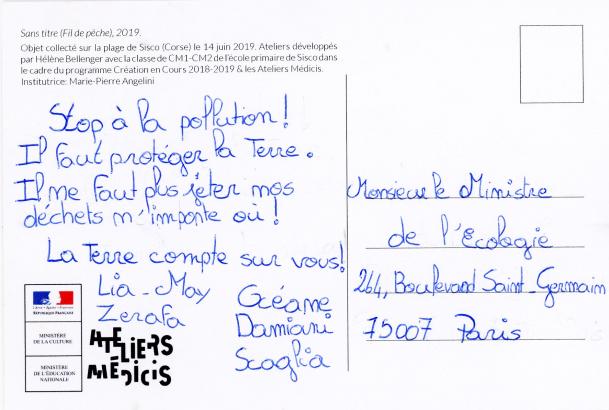 Sans titre (Fil de pêche), 2019.
Objet collecté sur la plage de Sisco (Corse) le 14 juin 2019. Ateliers développés
par Hélène Bellenger avec la classe de CM1-CM2 de l'école primaire de Sisco dans
le cadre du programme Création en Cours 2018-2019 & les Ateliers Médicis.
Institutrice: Marie-Pierre Angelini
Stop à la pollution!
Il faut protéger la Terre.
Il me faut plus jeter mos
déchets m'imponte où!
La Terre compte sur vous!
Lia-May
Zerafa
Océame
Damiani
Scaglia
Monsieur le Ministre
de l'Ecologie
264, Boulevard Saint-Germain
75007 Paris
Liberté • Égalité • Fraternité
RÉPUBLIQUE FRANÇAISE
MINISTÈRE
DE LA CULTURE
MINISTÈRE
DE L'ÉDUCATION
NATIONALE
ATELIERS
MÉDICIS